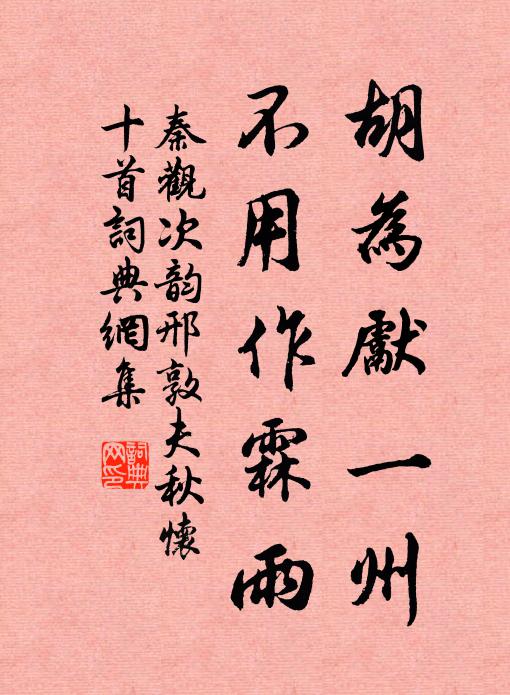 胡為獻一州
不用作霖雨
秦觀次韵邢敦夫秋懷
十首詞典網集
詞典
网印